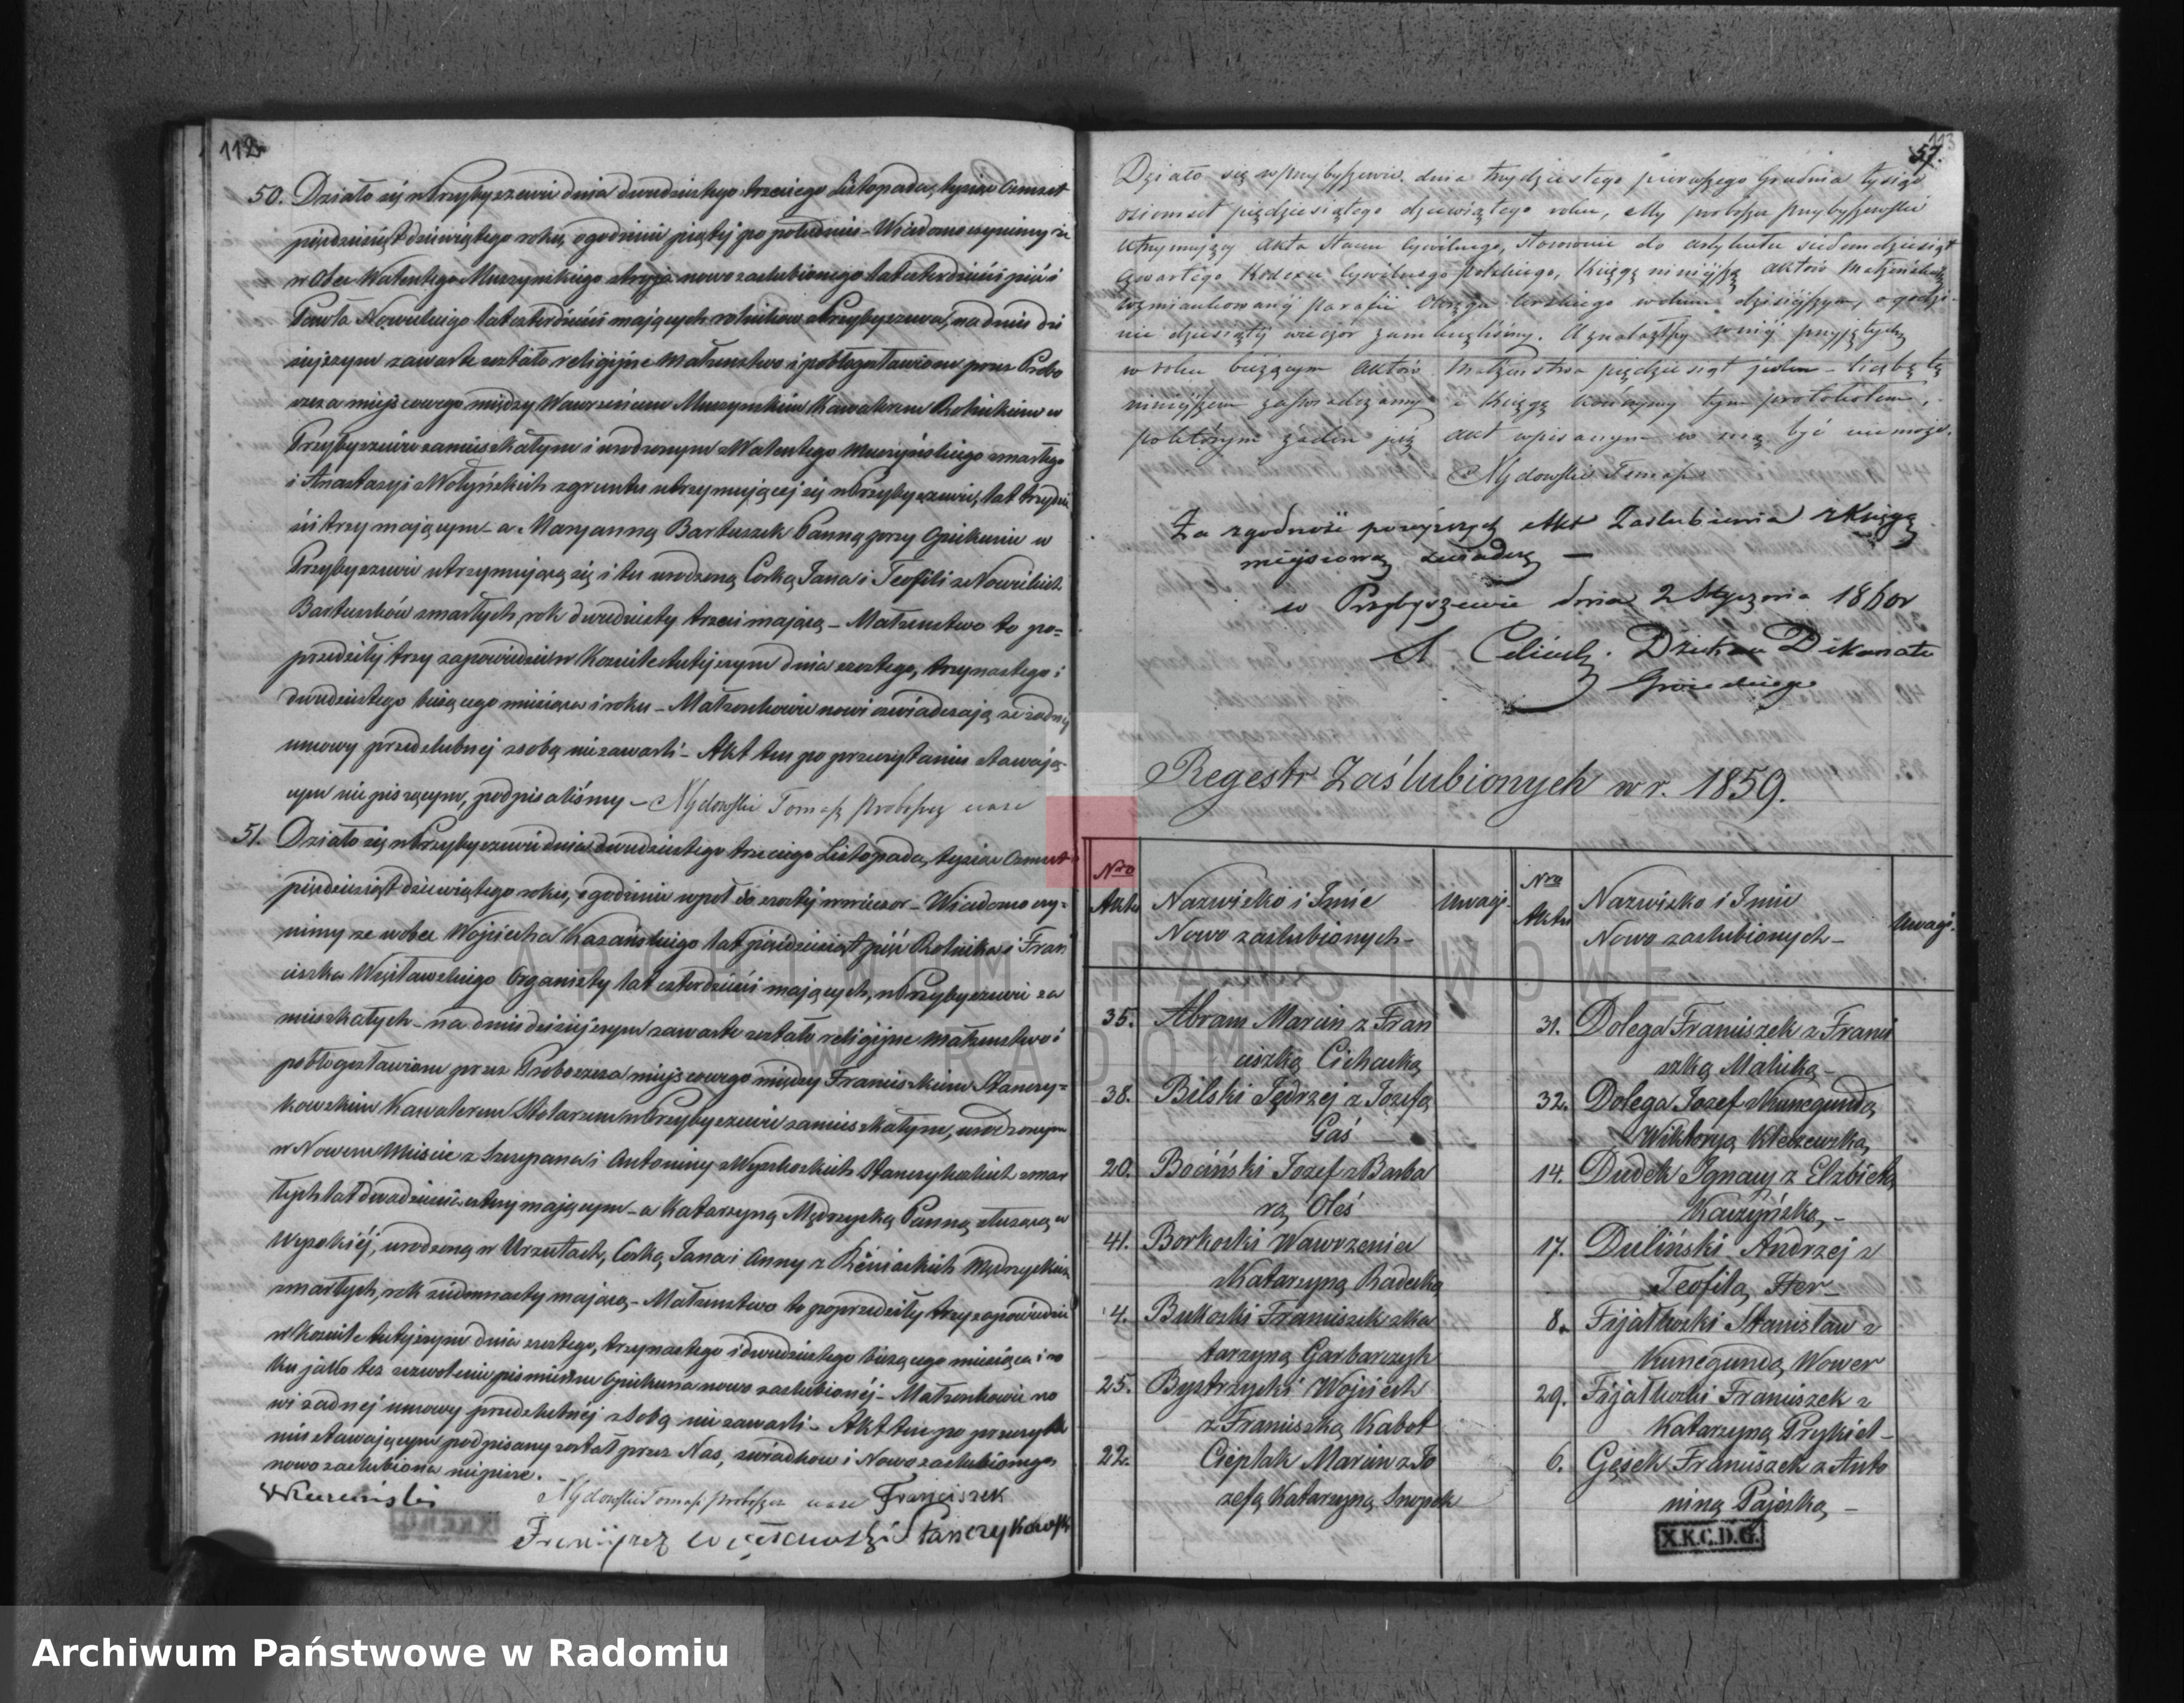 112
50. Działo się w Przybyszewie dnia dwudziestego trzeciego Listopada, tysiąc Ośmset
pięćdziesiąt dziewiątego roku, o godzinie piątej po południu – Wiadomo czynimy że
w obec Walentego Muszyńskiego stryja nowozaślubionego lat czterdzieści pięć i
Pawła Nowickiego lat czterdzieści mających rolników z Przybyszewa, na dniu dzi
siejszym zawarte zostało religijne małżeństwo i pobłogosławione przez Probo
szcza miejscowego między Wawrzeńcem Muszyńskim Kawalerem Rolnikiem w
Przybyszewie zamieszkałym i urodzonym z Walentego Muszyńskiego zmarłego
i Anastazyi z Wołyńskich z gruntu utrzymującej się w Przybyszewie, lat trzydzie
ści trzy mającym – a Maryanną Bartuszek Panną przy Opiekunie w
Przybyszewie utrzymującą się i tu urodzoną Córką Jana i Teofili z Nowickich
Bartuszków zmarłych, rok dwudziesty trzeci mającą – Małżeństwo to po=
przedziły trzy zapowiedzi w Kościele tutejszym dnia szóstego, trzynastego i
dwudziestego bieżącego miesiąca i roku – Małżonkowie nowi oświadczają że żadnej
umowy przedślubnej z sobą nie zawarli – Akt ten po przeczytaniu stawają
cym nie piszącym, podpisaliśmy – Nydowski Tomasz Proboszcz
51. Działo się w Przybyszewie dnia dwudziestego trzeciego Listopada, tysiąc Ośmset
pięćdziesiąt dziewiątego roku, o godzinie wpół do szóstej wieczór – Wiadomo czy=
nimy że w obec Wojciecha Kazańskiego lat pięćdziesiąt pięć Rolnika i Fran
ciszka Węsławskiego Organisty lat czterdzieści mających, w Przybyszewie za
mieszkałych – na dniu dzisiejszym zawarte zostało religijne małżeństwo i
pobłogosławione przez Proboszcza miejscowego między Franciszkiem Stanczy=
kowskim Kawalerem Stolarzem w Przybyszewie zamieszkałym, urodzonym
w Nowem Mieście z Szczepana i Antoniny z Wysockich Stanczykowskich zmar
łych lat dwadzieścia cztery mającym – a Katarzyną Mędrzycką Panną służącą w
Wysokiéj, urodzoną w Urzutach, Córką Jana i Anny z Mędrzyckich
zmarłych, rok siedmnasty mającą – Małżeństwo to poprzedziły trzy zapowiedzi
w Kościele tutejszym dnia szóstego, trzynastego i dwudziestego bieżącego miesiąca i ro
ku jako też zezwolenie piśmienne Opiekuna nowo zaślubionéj – Małżonkowie no
wi żadnej umowy przedślubnéj z sobą nie zawarli – Akt ten po przeczyta
niu stawającym podpisany został przez Nas, świadków i Nowozaślubionego
nowozaślubiona nie pisze. –
Nydowski Tomasz Proboszcz Franciszek
Stanczykowski
57.
Działo się w Przybyszewie dnia trzydziestego pierwszego Grudnia tysiąc
ośiemset pięćdziesiątego dziewiątego roku, My proboszcz Przybyszewski
utrzymujący Akta Stanu Cywilnego, stosownie do artykułu siedemdziesiąt
czwartego Kodexu Cywilnego Polskiego, księgę niniejszą Aktów Małżeńskich
wzmiankowanéj Parafii Okręgu w dniu dzisiejszym, o godzi-
nie dziesiątéj wieczór zamknęliśmy. A znalazłszy w niéj przyjętych
w roku bieżącym Aktów Małżeństwa pięćdziesiąt jeden – liczbę tę
niniejszem zaświadczamy i księgę kończymy tym protokołem,
po którym żaden już akt wpisanym w nią być nie może.
Nydowski Tomasz
Za zgodność powyższych Akt Zaślubienia z Księgą
miejscową świadczę –
w Przybyszewie dnia 2 Stycznia 1860r
Dziekan Dekanatu
Grójeckiego
Regestr Zaślubionych w r. 1859.
Nro Aktu Nazwisko i Imie Nowo zaślubionych – Uwagi.
Nro Aktu Nazwisko i Imie Nowo zaślubionych – Uwagi.
35. Abram Marcin z Fran
ciszką Cichacką
38. Bilski Jędrzej z Józefą
Gaś –
20. Bociński Józef z Barba
rą Oleś
41. Borkoski Wawrzenia
z Katarzyną Radecką
4. Bukoski Franciszek z Ka
tarzyną Garbarczyk
25. Bystrzycki Wojciech
z Franciszką Kabot
22. Cieplak Marcin z Jó
zefą Katarzyną Snopek
31. Dolega Franciszek z Franci
szką Malicką –
32. Dolega Józef z Kunegundą
Wiktoryą Kleszewską
14. Dudek Ignacy z Elżbietą
Kaczyńską, –
17. Duliński Andrzej z
Teofilą Her –
8. Fijałkoski Stanisław z
Kunegundą Wower
29. Fijałkoski Franciszek z
Katarzyną Prykiel –
6. Gęsek Franciszek z Anto
niną Pajoską –
X.K.C.D.G.
ARCHIWUM PAŃSTWOWE
W RADOMIU
Archiwum Państwowe w Radomiu